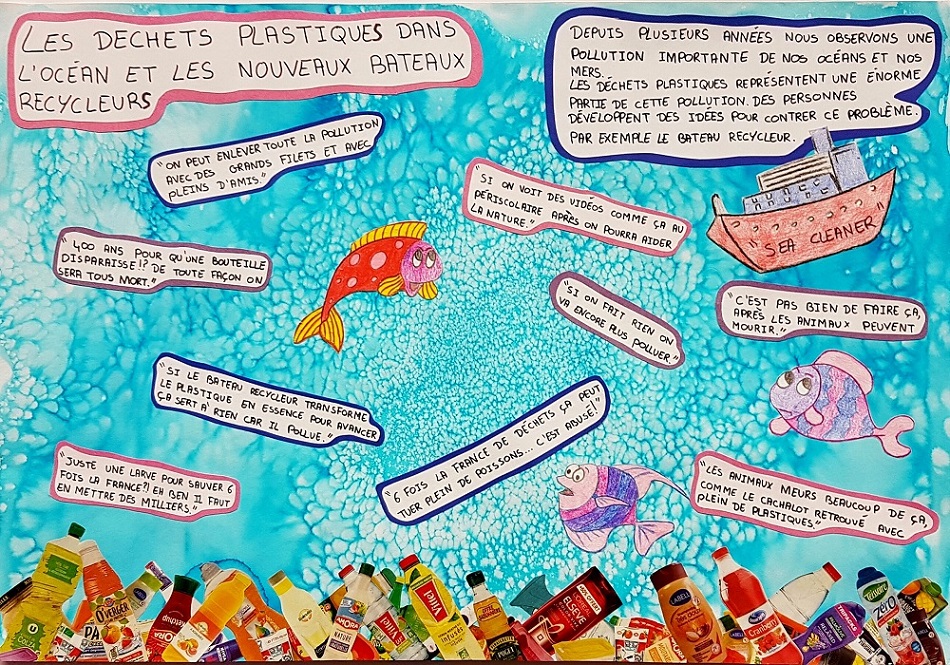 LES DECHETS PLASTIQUES DANS
L'OCÉAN ET LES NOUVEAUX BATEAUX
RECYCLEURS
DEPUIS PLUSIEURS ANNÉES NOUS OBSERVONS UNE
POLLUTION IMPORTANTE DE NOS OCÉANS ET NOS
MERS.
LES DÉCHETS PLASTIQUES REPRÉSENTENT UNE ÉNORME
PARTIE DE CETTE POLLUTION. DES PERSONNES
DÉVELOPPENT DES IDÉES POUR CONTRER CE PROBLÈME.
PAR EXEMPLE LE BATEAU RECYCLEUR.
"ON PEUT ENLEVER TOUTE LA POLLUTION
AVEC DES GRANDS FILETS ET AVEC
PLEINS D'AMIS."
"SI ON VOIT DES VIDÉOS COMME ÇA AU
PÉRISCOLAIRE APRÈS ON POURRA AIDER
LA NATURE."
"SEA CLEANER"
"400 ANS POUR QU'UNE BOUTEILLE
DISPARAISSE!? DE TOUTE FAÇON ON
SERA TOUS MORT."
"SI ON FAIT RIEN ON
VA ENCORE PLUS POLLUER."
"C'EST PAS BIEN DE FAIRE ÇA,
APRÈS LES ANIMAUX PEUVENT
MOURIR."
"SI LE BATEAU RECYCLEUR TRANSFORME
LE PLASTIQUE EN ESSENCE POUR AVANCER
ÇA SERT À RIEN CAR IL POLLUE."
"6 FOIS LA FRANCE DE DÉCHETS ÇA PEUT
TUER PLEIN DE POISSONS... C'EST ABUSÉ!"
"JUSTE UNE LARVE POUR SAUVER 6
FOIS LA FRANCE?! EH BEN IL FAUT
EN METTRE DES MILLIERS."
"LES ANIMAUX MEURS BEAUCOUP DE ÇA,
COMME LE CACHALOT RETROUVÉ AVEC
PLEIN DE PLASTIQUES."
Vittel
ELSEVE
LABELL
Cranberry
zéro